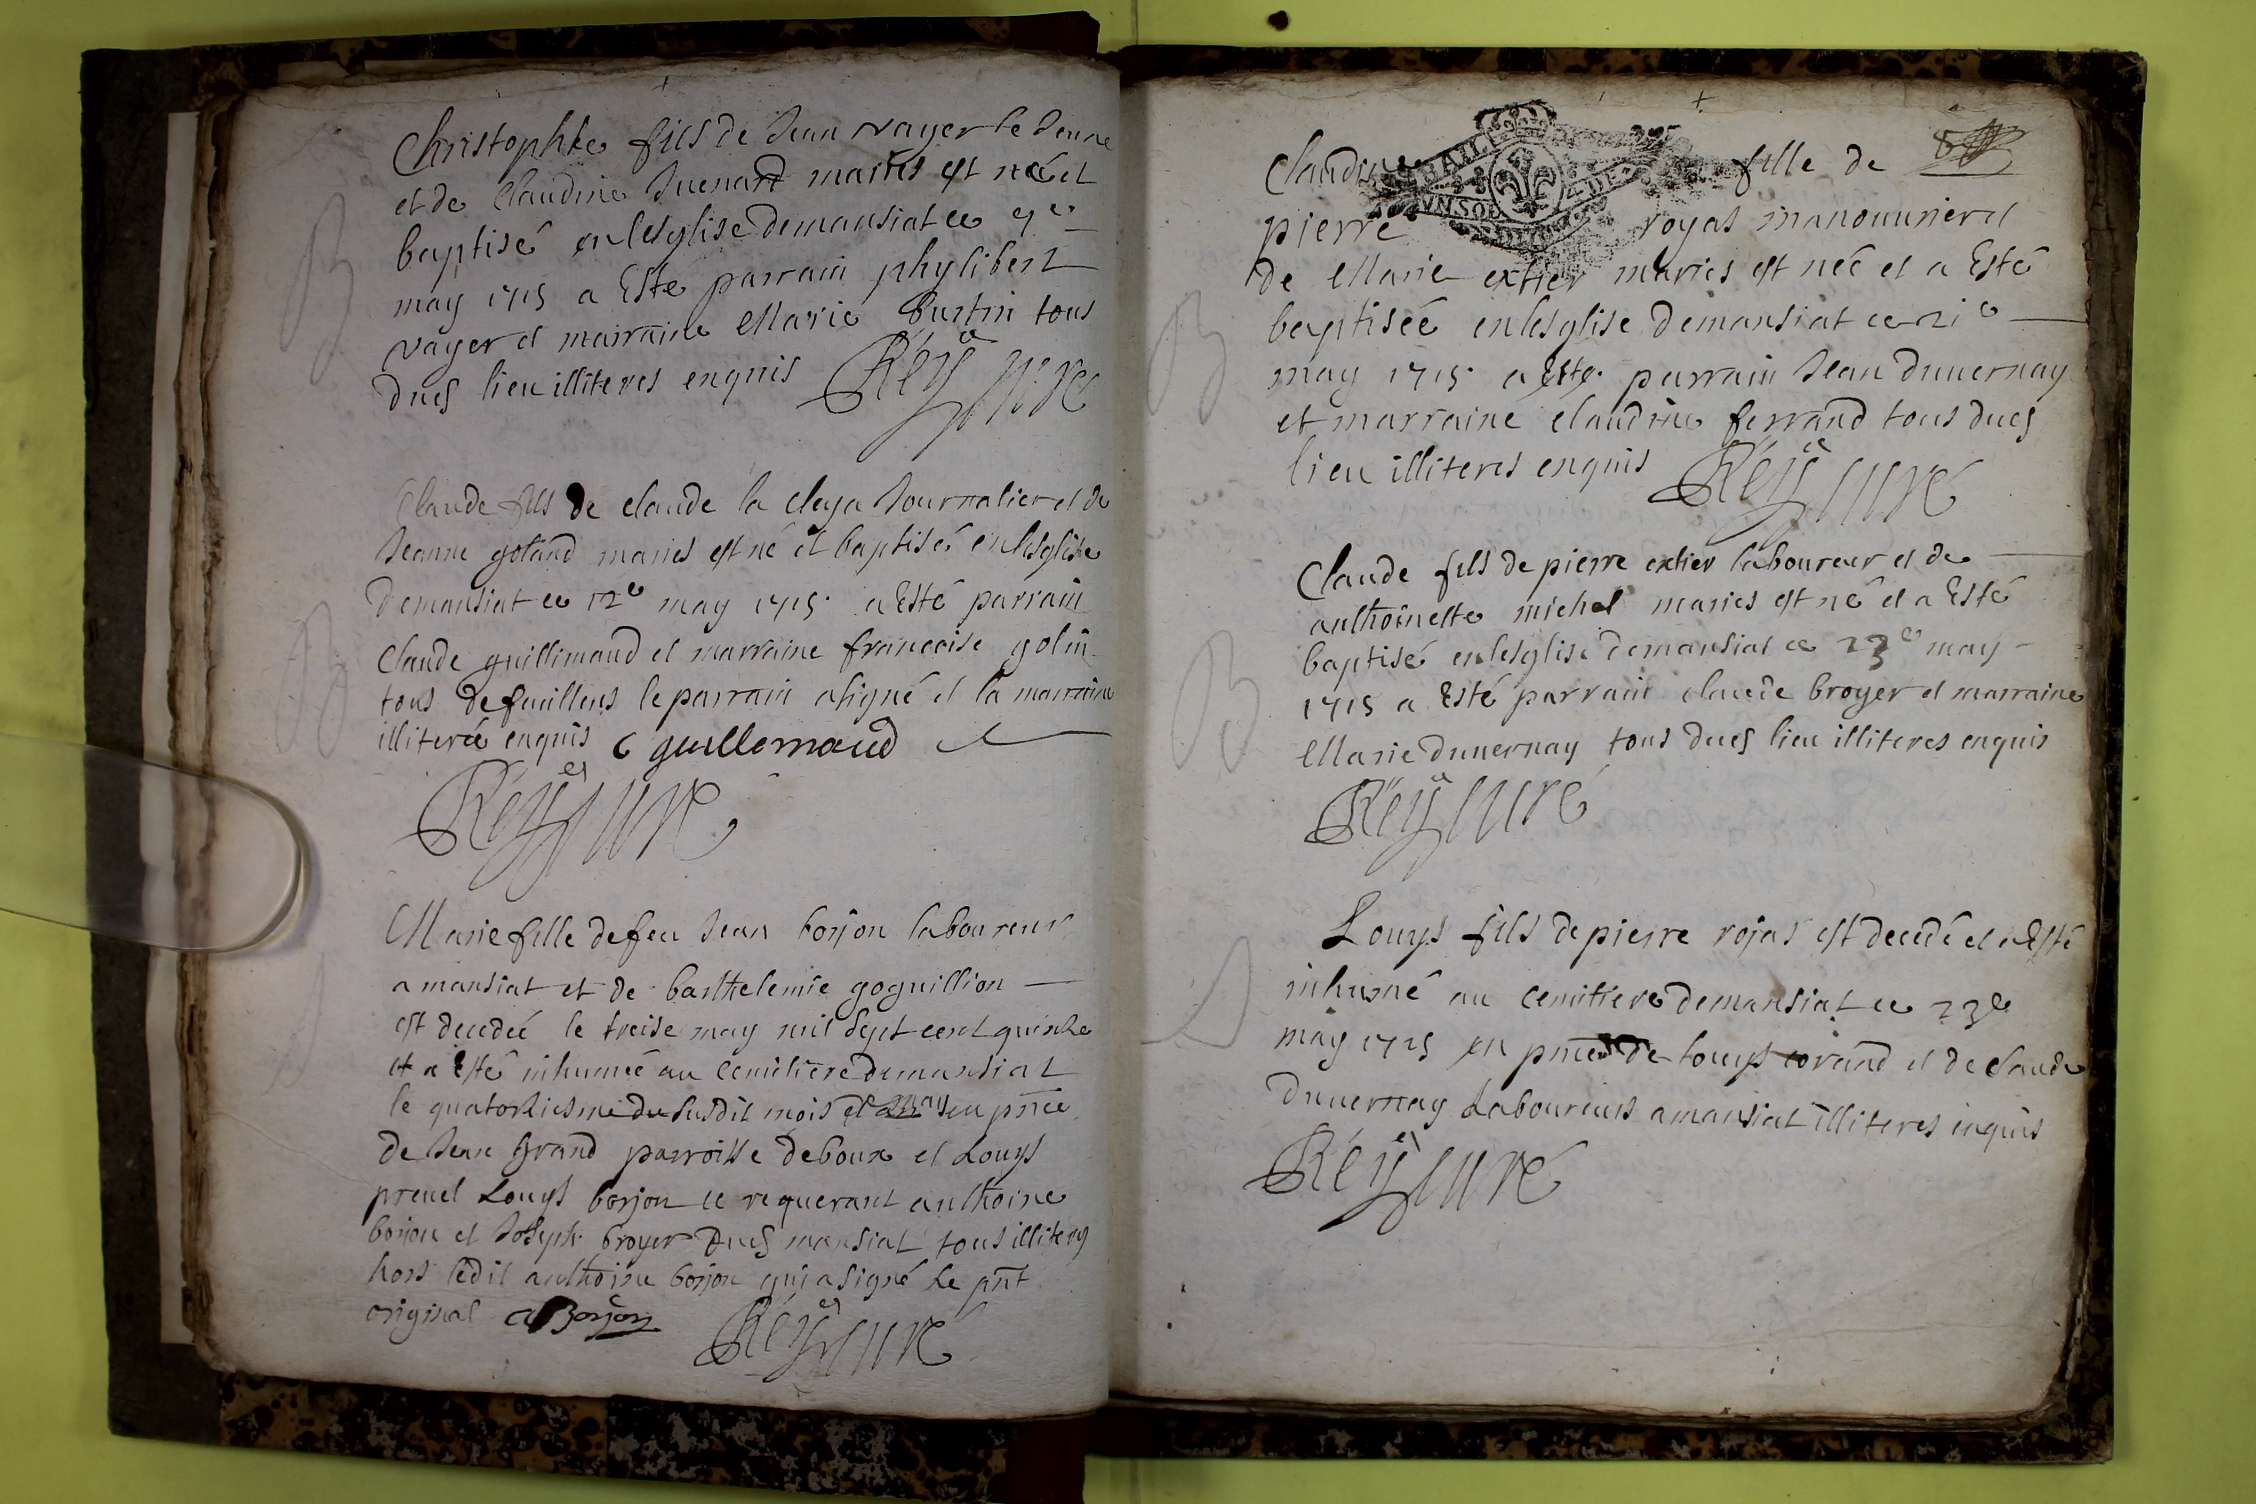 Christophle fils de Jean vayer le Jeune
et de Claudine Juenard mariés est né et
baptisé en lesglise demansiat ce
may 1715 a Esté parrain phylibert
vayer et marraine Marie Burtin tous
dues lieu illiteres enquis Réÿ Curé
B
Claude fils de claude la cleya Journalier et de
Jeanne goland maries est né et baptisé en lesglise
demansiat ce 12e may 1715 a Esté parrain
Claude guillimaud et marraine francoise golin
tous defeuillens le parrain asigné et la marraine
illiterée enquis C guillemaud
Réÿ Curé
B
Marie fille defeu Jean borjon laboureur
a mansiat et de barthelemie goguillion
est decedeé le treise may mil sept cent quinze
et a Esté inhumeé au cemitiere demansiat
le quatorziesme du susdit mois et en pnce
de Jean Grand parroisse deboux et Louys
pruel Louys borjon ce requerant anthoine
borjon et Joseph broyer dues mansiat tous illiteres
hors ledit anthoine borjon qui a signé Le pnt
original a Borjon Réÿ Curé
fille de
pierre royas manouurier et
de Marie extier maries est neé et a Esté
baptiseé en lesglise demansiat ce 21e
may 1715 a Esté parrain Jean duuernay
et marraine claudine ferrand tous dues
lieu illiteres enquis Réÿ Curé
B
Claude fils de pierre extier laboureur et de
anthoinette michel maries est né et a Esté
baptisé en lesglise demansiat ce 23e may
1715 a Esté parrain claude broyer et marraine
Marie duuernay tous dues lieu illiteres enquis
Réÿ Curé
B
Louys fils de pierre rojas est decedé et a Esté
inhumé au cemitiere demansiat ce 23e
may 1715 en pnce de Louys corand et de claude
duuernay Laboureurs a mansiat illiteres enquis
Réÿ Curé